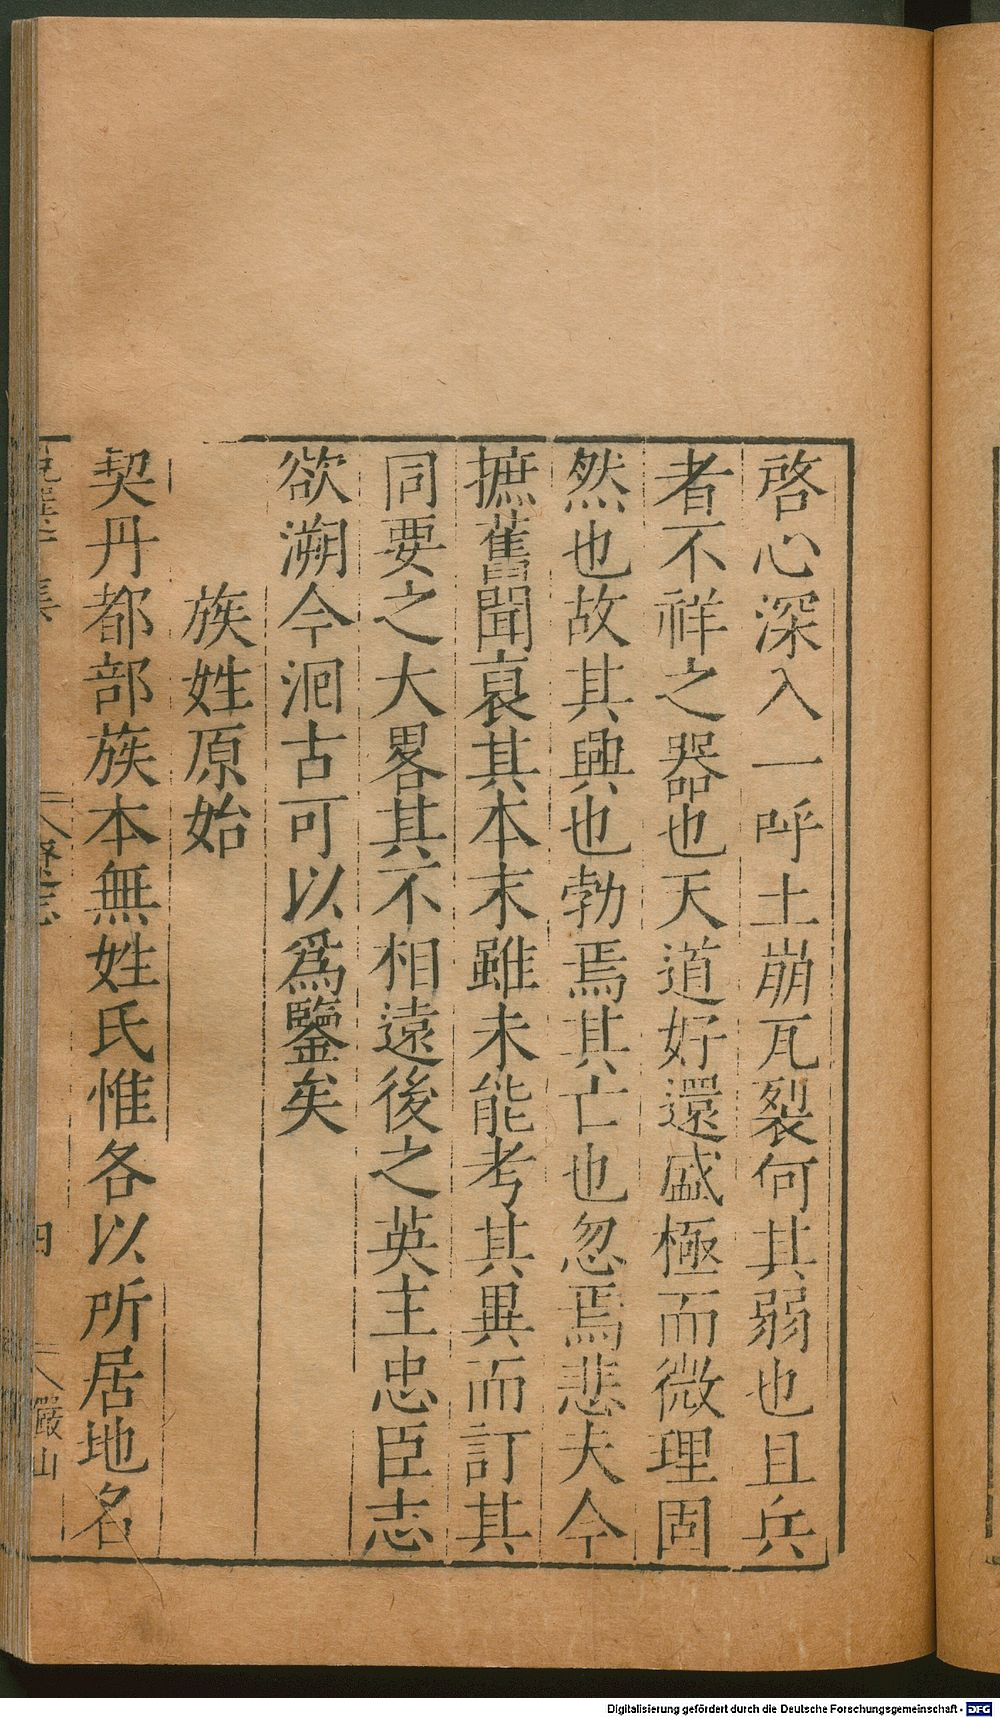 啓心深入一呼土崩瓦裂何其弱也且兵
者不祥之器也天道好還盛極而微理固
然也故其興也勃焉其亡也忽焉悲夫今
摭舊聞裒其本末雖未能考其異而訂其
同要之大畧其不相遠後之英主忠臣志
欲溯今洄古可以爲鑒矣
族姓原始
契丹都部族本無姓氏惟各以所居地名
四
嚴山
Digitalisierung gefördert durch die Deutsche Forschungsgemeinschaft - DFG